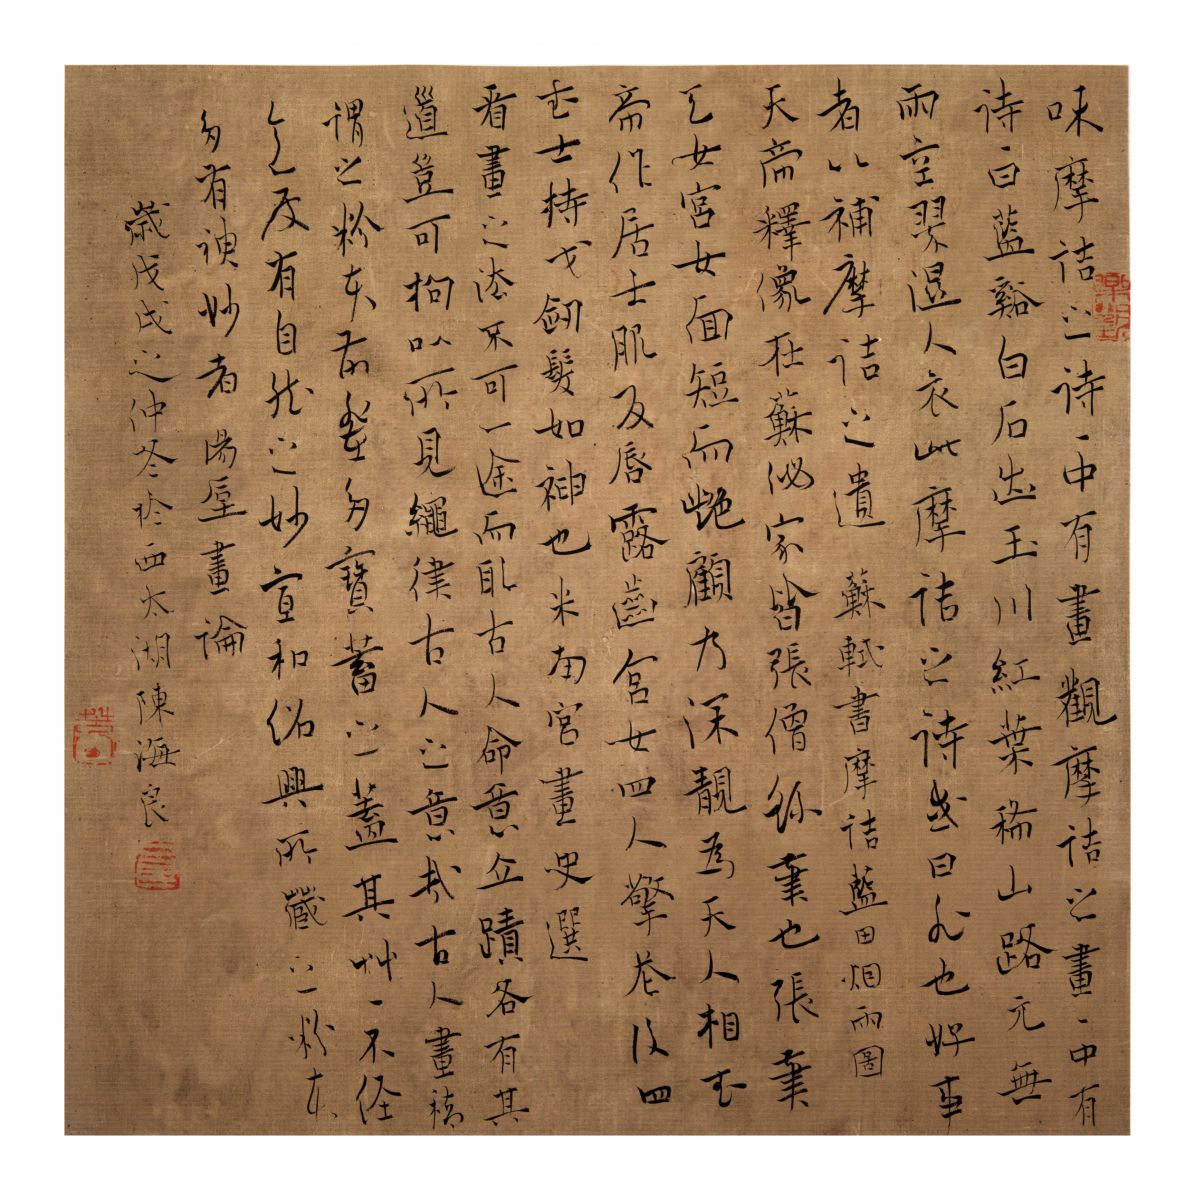 味摩詰之詩々中有畫觀摩詰之畫々中有
詩曰藍谿白石出玉川紅葉稀山路元無
雨空翠溼人衣此摩詰之詩或曰非也好事
者以補摩詰之遺 蘇軾書摩詰藍田烟雨圖
天帝釋像在蘇泌家皆張僧繇筆也張筆
天女宮女面短而艷顧乃深靚為天人相武
帝作居士服反唇露齒宮女四人擎花後四
武士持戈劒髮如神也米南宮畫史選
看畫之法不可一途而取古人命意立蹟各有其
道豈可拘以所見繩律古人之意哉古人畫稿
謂之粉本前輩多寶蓄之蓋其草々不經
意處有自然之妙宣和紹興所藏之粉本
多有神妙者 湯垕畫論
歲戊戌之仲冬於西太湖陳海良